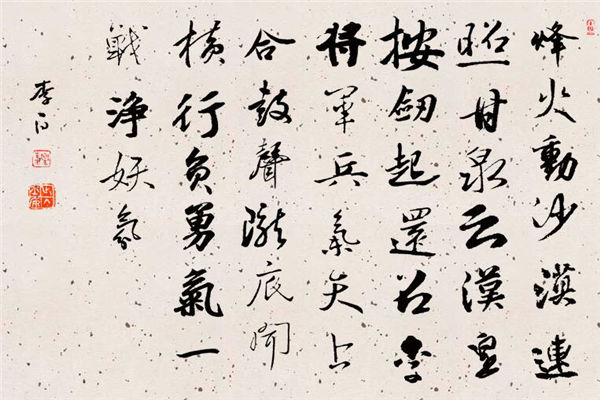 烽火動沙漠連
照甘泉云漢皇
按劍起還召李
将軍兵氣天上
合鼓聲隴底聞
横行負勇氣一
戰淨妖氛
李白